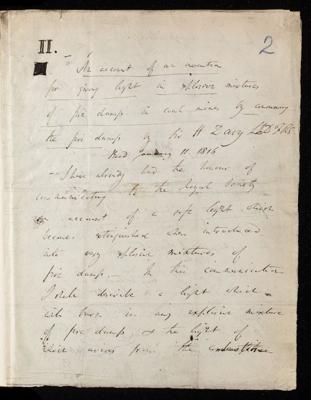 II.
2
An account of an invention
for giving light in explosive mixtures
of fire damp in coal mines by consuming
the fire damp by Sir H Davy LLD F.R.S.
Read January 11. 1816
— I have already had the honour of
communicating to the Royal Society
an account of a safe light which
becomes extinguished when introduced
into very explosive mixtures of
fire damp. — In this communication
I shall describe a light which
will burn in any explosive mixture
of fire damp, & the light of
which arises from the combustion